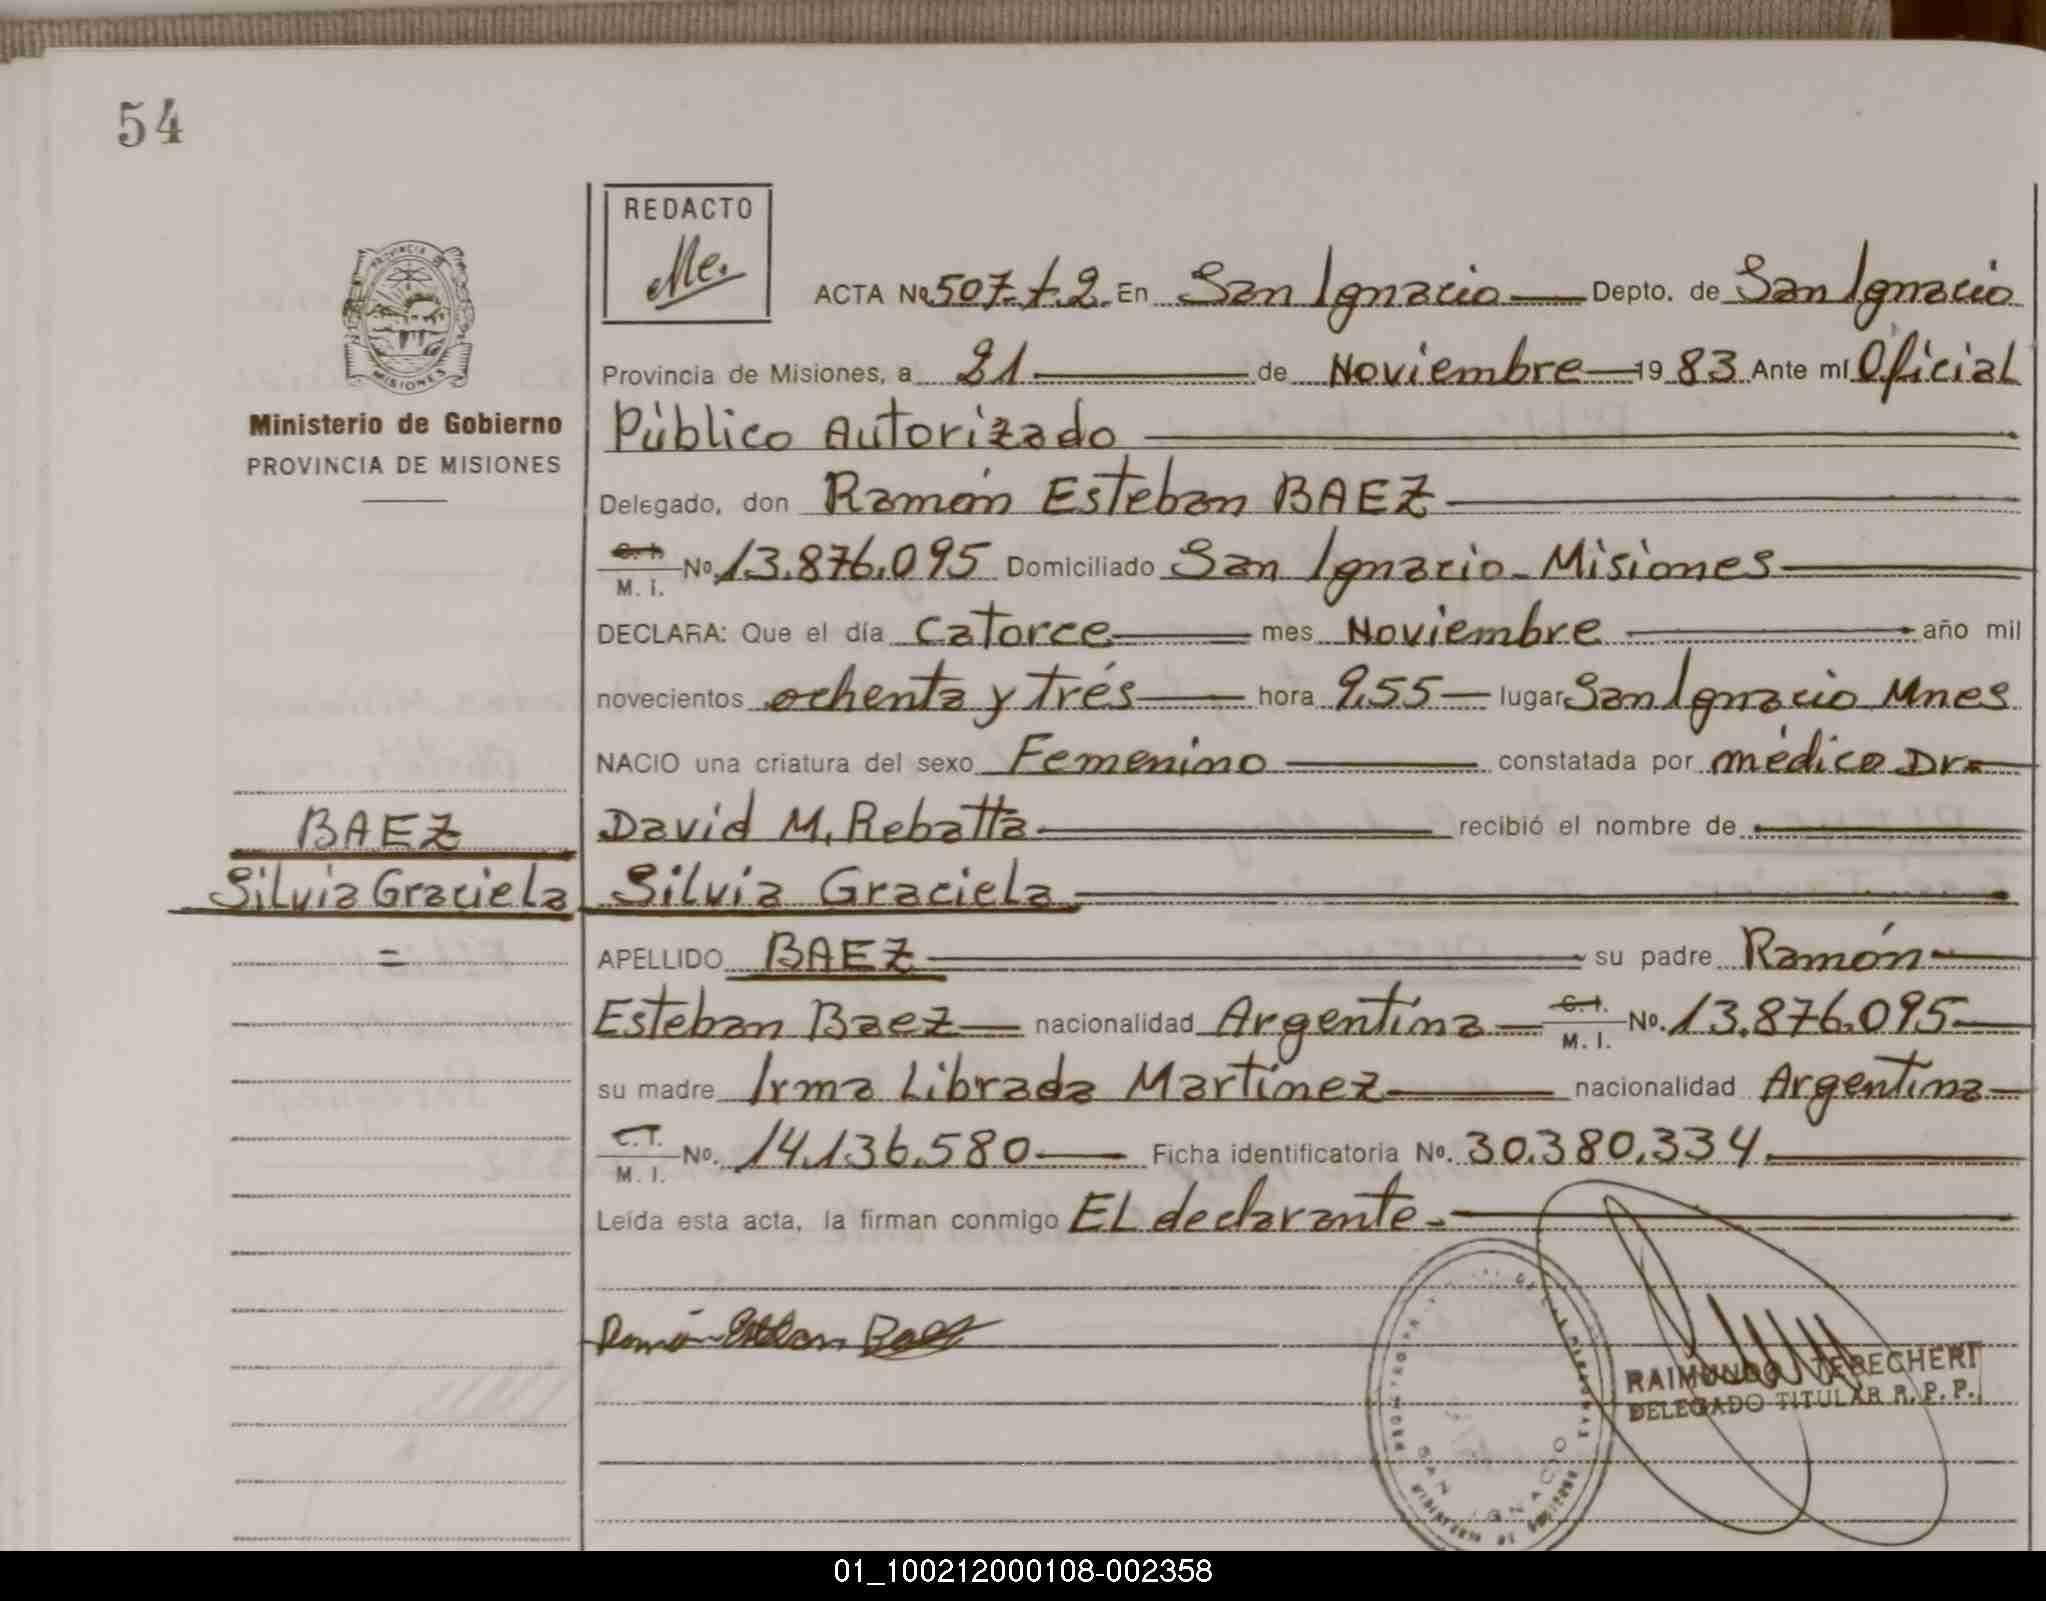 54
REDACTO
Me.
PROVINCIA DE
MISIONES
Ministerio de Gobierno
PROVINCIA DE MISIONES
ACTA No 507. t. 2. En San Ignacio Depto. de San Ignacio
Provincia de Misiones, a 21 de Noviembre 1983 Ante mí Oficial
Público Autorizado
Delegado, don Ramón Esteban BAEZ
C. I. M. I. No. 13.876.095 Domiciliado San Ignacio - Misiones
DECLARA: Que el día Catorce mes Noviembre año mil
novecientos ochenta y trés hora 9,55 lugar San Ignacio Mnes
NACIO una criatura del sexo Femenino constatada por médico Dr.
David M. Rebatta recibió el nombre de
BAEZ
Silvia Graciela
Silvia Graciela
APELLIDO BAEZ su padre Ramón
Esteban Baez nacionalidad Argentina C. I. M. I. No. 13.876.095
su madre Irma Librada Martínez nacionalidad Argentina
C. I. M. I. No. 14.136.580 Ficha identificatoria No. 30.380.334
Leída esta acta, la firman conmigo EL declarante.
Ramón Esteban Baez
SAN IGNACIO
RAIMUNDO TEBECHERI
DELEGADO TITULAR R. P. P.
01_100212000108-002358